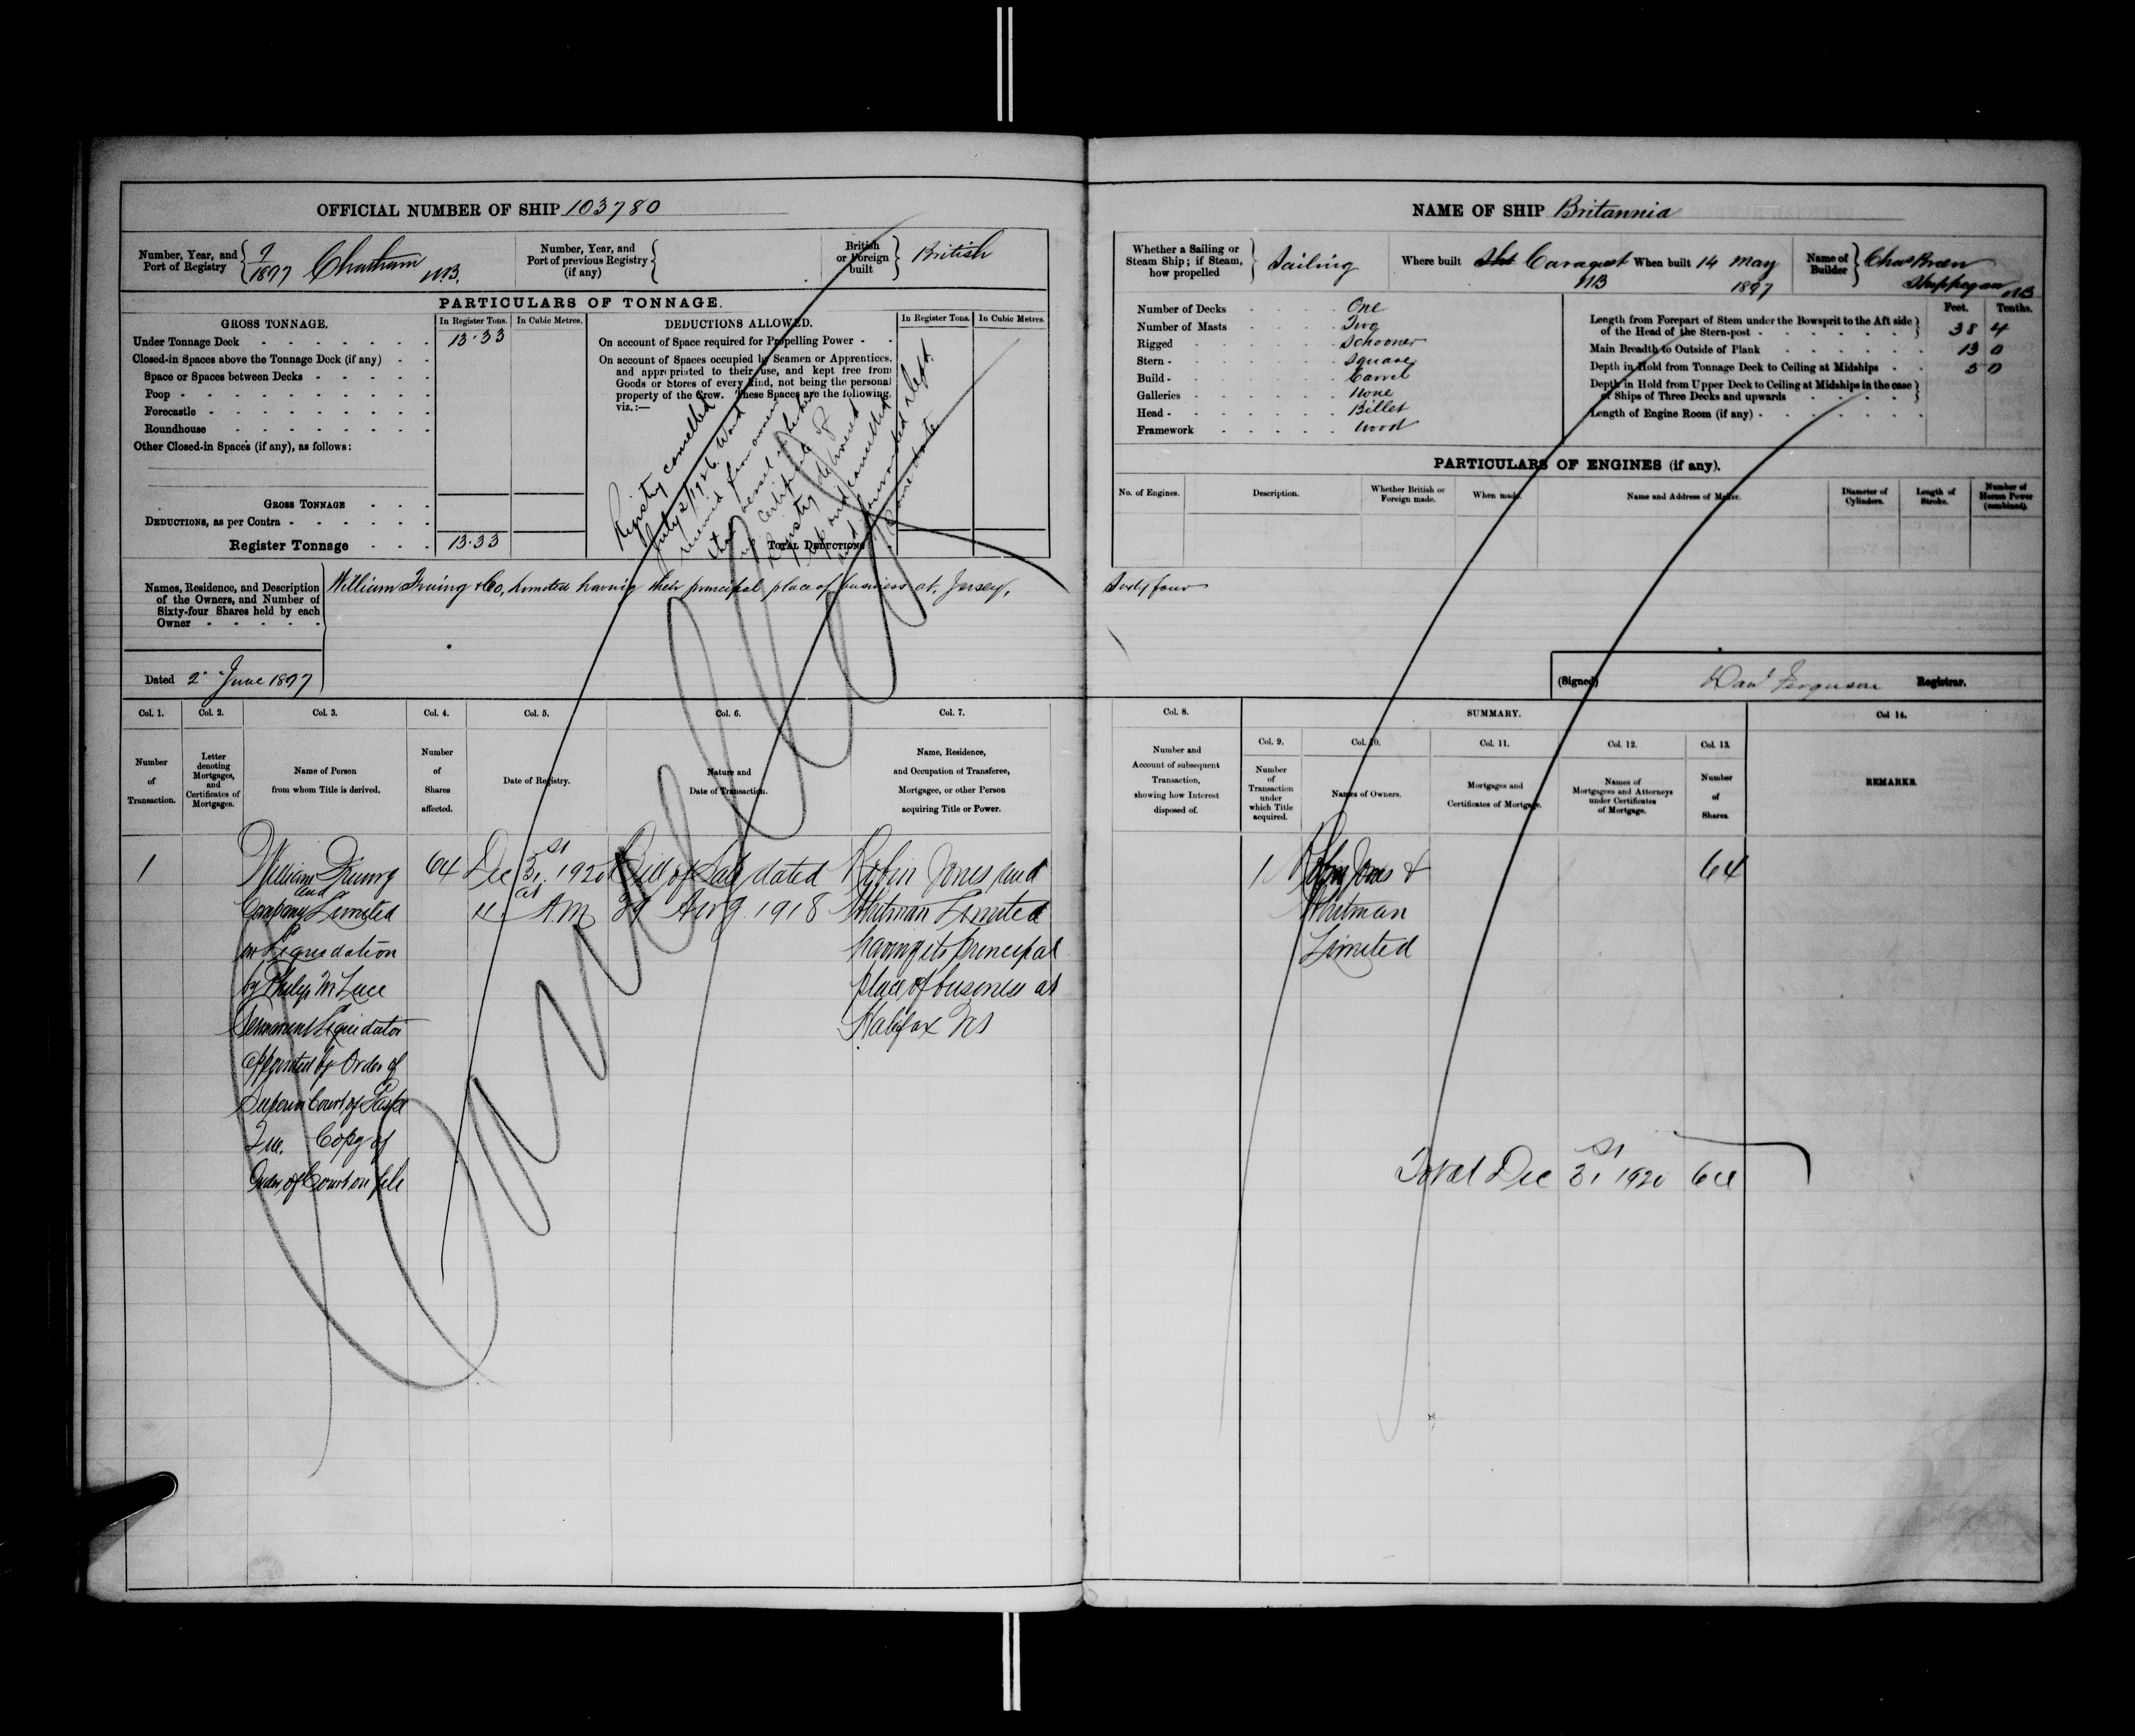 OFFICIAL NUMBER OF SHIP 103780
Number, Year, and Port of Registry
1897 Chatham N.B.
Number, Year, and Port of previous Registry (if any)
British or Foreign built
British
PARTICULARS OF TONNAGE.
GROSS TONNAGE.
In Register Tons. In Cubic Metres.
Under Tonnage Deck 13.33
Closed-in Spaces above the Tonnage Deck (if any)
Space or Spaces between Decks
Poop
Forecastle
Roundhouse
Other Closed-in Spaces (if any), as follows:
GROSS TONNAGE
DEDUCTIONS, as per Contra
Register Tonnage 13.33
DEDUCTIONS ALLOWED.
In Register Tons. In Cubic Metres.
On account of Space required for Propelling Power
On account of Spaces occupied by Seamen or Apprentices,
and appropriated to their use, and kept free from
Goods or Stores of every kind, not being the personal
property of the Crew. These Spaces are the following,
viz.:—
TOTAL DEDUCTIONS
Registry cancelled
July 2/1926. Word
received from owners
that vessel
Certificate of
Registry delivered
up and cancelled
and forwarded Dept.
same date
Names, Residence, and Description
of the Owners, and Number of
Sixty-four Shares held by each
Owner
William Fruing & Co, Limited having their principal place of business at, Jersey,
Dated 2 June 1897
Col. 1. Col. 2. Col. 3. Col. 4. Col. 5. Col. 6. Col. 7.
Number of Transaction.
Letter denoting Mortgages, and Certificates of Mortgages.
Name of Person from whom Title is derived.
Number of Shares affected.
Date of Registry.
Nature and Date of Transaction.
Name, Residence, and Occupation of Transferee, Mortgagee, or other Person acquiring Title or Power.
1 William Fruing 64 Dec 31st 1920 Bill of Sale dated Robin Jones and
and
Company Limited at 11 A.M 29 Aug. 1918 Whitman Limited
in Liquidation having its principal
by Philip M Luce place of business at
Permanent Liquidator Halifax NS
Appointed by Order of
Superior Court of Gaspe
Que. Copy of
Order of Court on file
Cancelled
NAME OF SHIP Britannia
Whether a Sailing or Steam Ship; if Steam, how propelled
Sailing
Where built Caraquet NB
When built 14 May 1897
Name of Builder
Chas
Shippegan NB
Number of Decks One
Number of Masts Two
Rigged Schooner
Stern Square
Build Carvel
Galleries None
Head Billet
Framework Wood
Feet. Tenths.
Length from Forepart of Stem under the Bowsprit to the Aft side
of the Head of the Stern-post 38 4
Main Breadth to Outside of Plank 13 0
Depth in Hold from Tonnage Deck to Ceiling at Midships 5 0
Depth in Hold from Upper Deck to Ceiling at Midships in the case
of Ships of Three Decks and upwards
Length of Engine Room (if any)
PARTICULARS OF ENGINES (if any).
No. of Engines. Description. Whether British or Foreign made. When made. Name and Address of Maker. Diameter of Cylinders. Length of Stroke. Number of Horses Power (combined).
Sixty four
(Signed) Dan Ferguson Registrar.
Col. 8. SUMMARY. Col 14.
Col. 9. Col. 10. Col. 11. Col. 12. Col. 13.
Number and Account of subsequent Transaction, showing how Interest disposed of.
Number of Transaction under which Title acquired.
Names of Owners.
Mortgages and Certificates of Mortgage.
Names of Mortgagees and Attorneys under Certificates of Mortgage.
Number of Shares
REMARKS.
1 Robin Jones & 64
Whitman
Limited
Total Dec 31st 1920 64